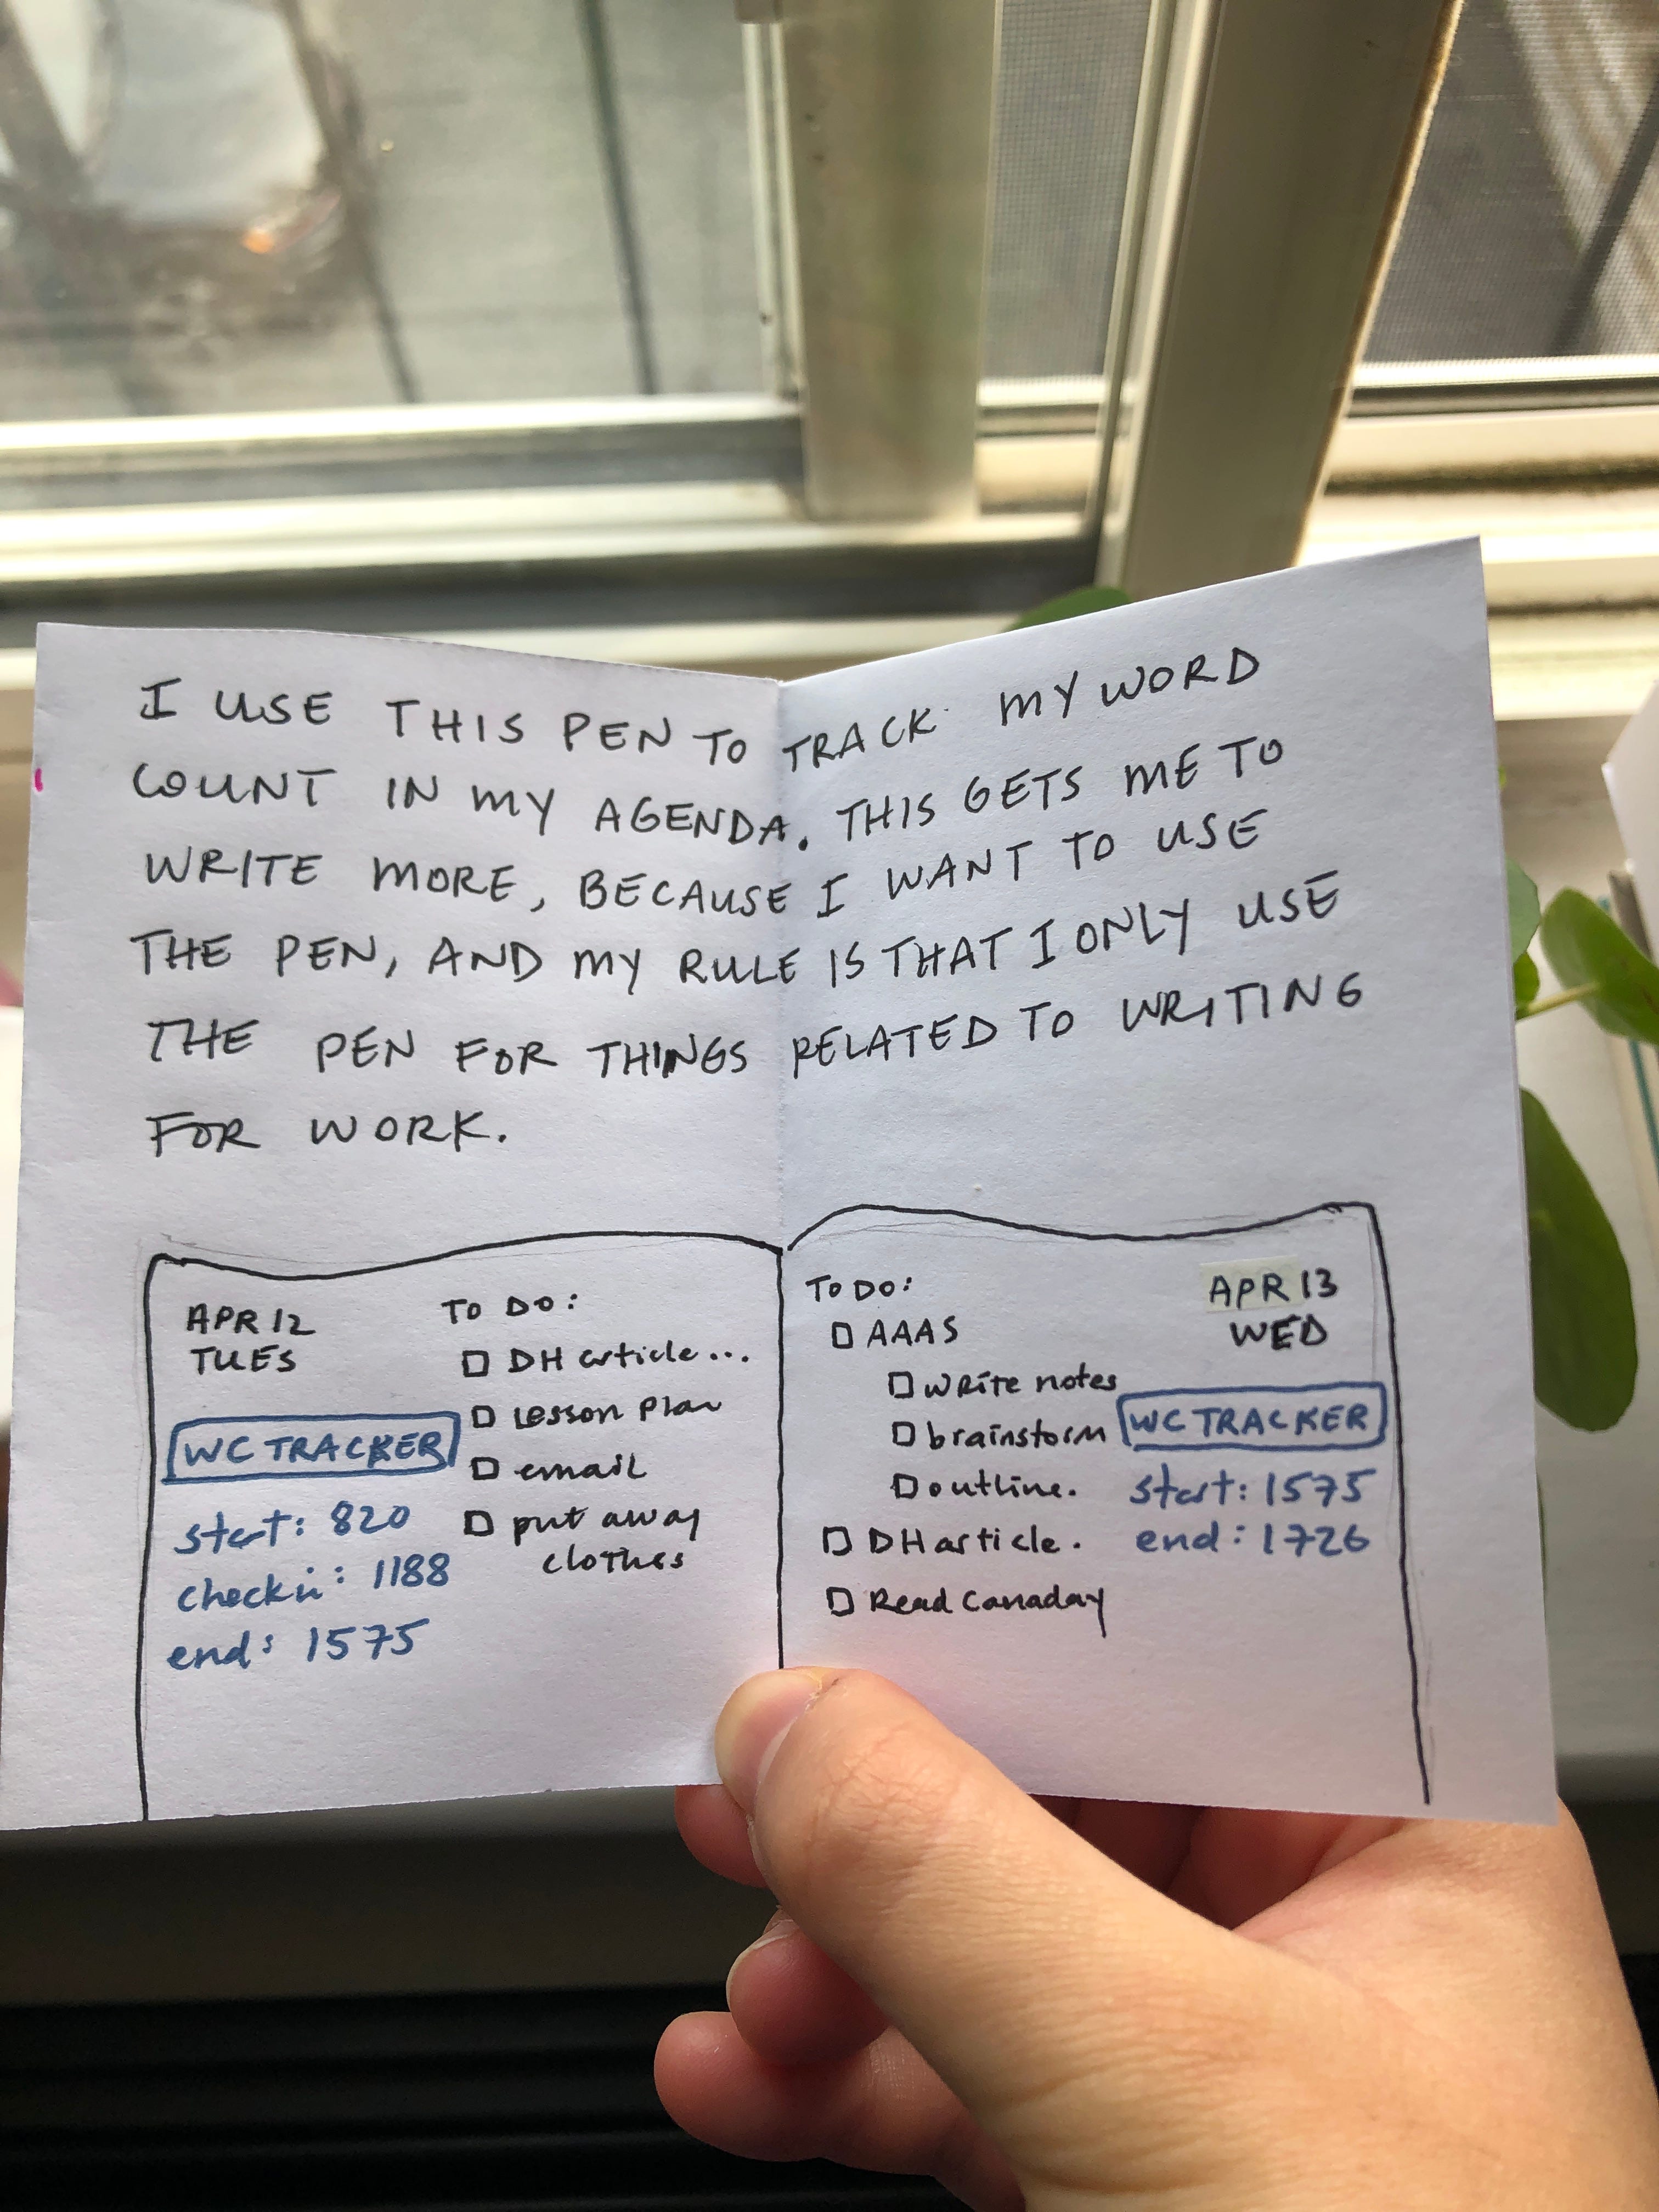 I USE THIS PEN TO TRACK MY WORD
COUNT IN MY AGENDA. THIS GETS ME TO
WRITE MORE, BECAUSE I WANT TO USE
THE PEN, AND MY RULE IS THAT I ONLY USE
THE PEN FOR THINGS RELATED TO WRITING
FOR WORK.
APR 12
TUES
WC TRACKER
start: 820
checkin: 1188
end: 1575
TO DO:
DH article...
Lesson Plan
email
put away
clothes
TO DO:
AAAS
write notes
brainstorm
outline.
DH article.
Read Canaday
APR 13
WED
WC TRACKER
start: 1575
end: 1726